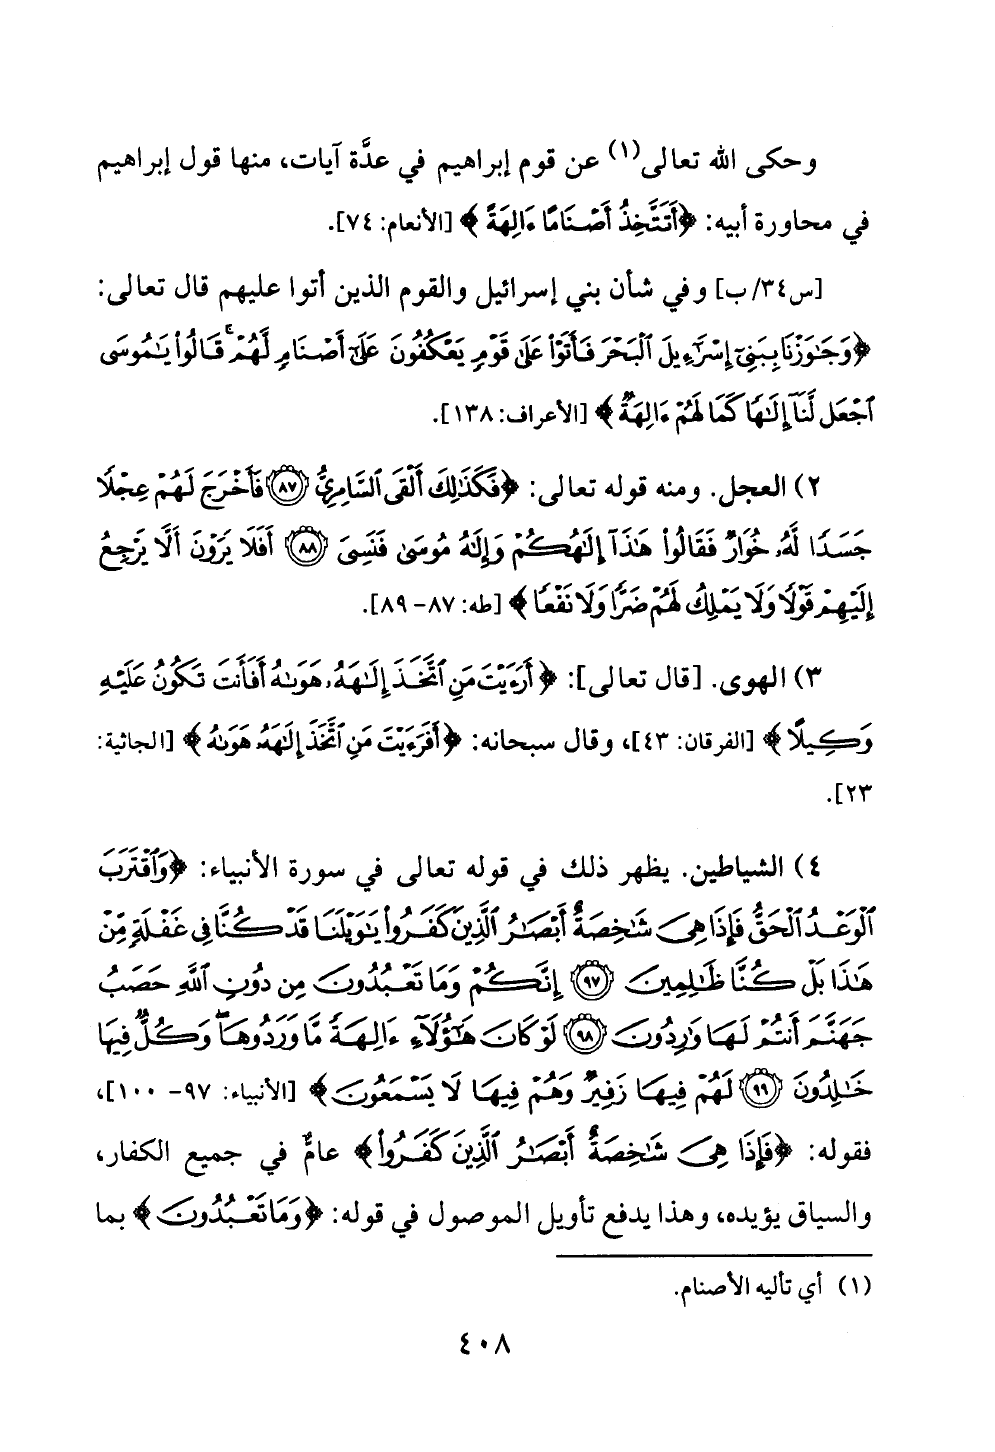 وحكى الله تعالى(١) عن قوم إبراهيم في عدَّة آيات، منها قول إبراهيم
في محاورة أبيه: ﴿أَتَتَّخِذُ أَصْنَامًا ءَالِهَةً﴾ [الأنعام: ٧٤].
[س٣٤/ ب] وفي شأن بني إسرائيل والقوم الذين أتوا عليهم قال تعالى:
﴿وَجَٰوَزْنَا بِبَنِىٓ إِسْرَٰٓءِيلَ ٱلْبَحْرَ فَأَتَوْا۟ عَلَىٰ قَوْمٍ يَعْكُفُونَ عَلَىٰٓ أَصْنَامٍ لَّهُمْ ۚ قَالُوا۟ يَٰمُوسَى
ٱجْعَل لَّنَآ إِلَٰهًا كَمَا لَهُمْ ءَالِهَةٌ ۚ﴾ [الأعراف: ١٣٨].
٢) العجل. ومنه قوله تعالى: ﴿فَكَذَٰلِكَ أَلْقَى ٱلسَّامِرِىُّ ۝٨٧ فَأَخْرَجَ لَهُمْ عِجْلًا
جَسَدًا لَّهُۥ خُوَارٌ فَقَالُوا۟ هَٰذَآ إِلَٰهُكُمْ وَإِلَٰهُ مُوسَىٰ فَنَسِىَ ۝٨٨ أَفَلَا يَرَوْنَ أَلَّا يَرْجِعُ
إِلَيْهِمْ قَوْلًا وَلَا يَمْلِكُ لَهُمْ ضَرًّا وَلَا نَفْعًا﴾ [طه: ٨٧- ٨٩].
٣) الهوى. [قال تعالى]: ﴿أَرَءَيْتَ مَنِ ٱتَّخَذَ إِلَٰهَهُۥ هَوَىٰهُ أَفَأَنتَ تَكُونُ عَلَيْهِ
وَكِيلًا﴾ [الفرقان: ٤٣]، وقال سبحانه: ﴿أَفَرَءَيْتَ مَنِ ٱتَّخَذَ إِلَٰهَهُۥ هَوَىٰهُ﴾ [الجاثية:
٢٣].
٤) الشياطين. يظهر ذلك في قوله تعالى في سورة الأنبياء: ﴿وَٱقْتَرَبَ
ٱلْوَعْدُ ٱلْحَقُّ فَإِذَا هِىَ شَٰخِصَةٌ أَبْصَٰرُ ٱلَّذِينَ كَفَرُوا۟ يَٰوَيْلَنَا قَدْ كُنَّا فِى غَفْلَةٍ مِّنْ
هَٰذَا بَلْ كُنَّا ظَٰلِمِينَ ۝٩٧ إِنَّكُمْ وَمَا تَعْبُدُونَ مِن دُونِ ٱللَّهِ حَصَبُ
جَهَنَّمَ أَنتُمْ لَهَا وَٰرِدُونَ ۝٩٨ لَوْ كَانَ هَٰٓؤُلَآءِ ءَالِهَةً مَّا وَرَدُوهَا ۖ وَكُلٌّ فِيهَا
خَٰلِدُونَ ۝٩٩ لَهُمْ فِيهَا زَفِيرٌ وَهُمْ فِيهَا لَا يَسْمَعُونَ﴾ [الأنبياء: ٩٧- ١٠٠]،
فقوله: ﴿فَإِذَا هِىَ شَٰخِصَةٌ أَبْصَٰرُ ٱلَّذِينَ كَفَرُوا۟﴾ عامٌّ في جميع الكفار،
والسياق يؤيده، وهذا يدفع تأويل الموصول في قوله: ﴿وَمَا تَعْبُدُونَ﴾ بما
(١) أي تأليه الأصنام.
٤٠٨